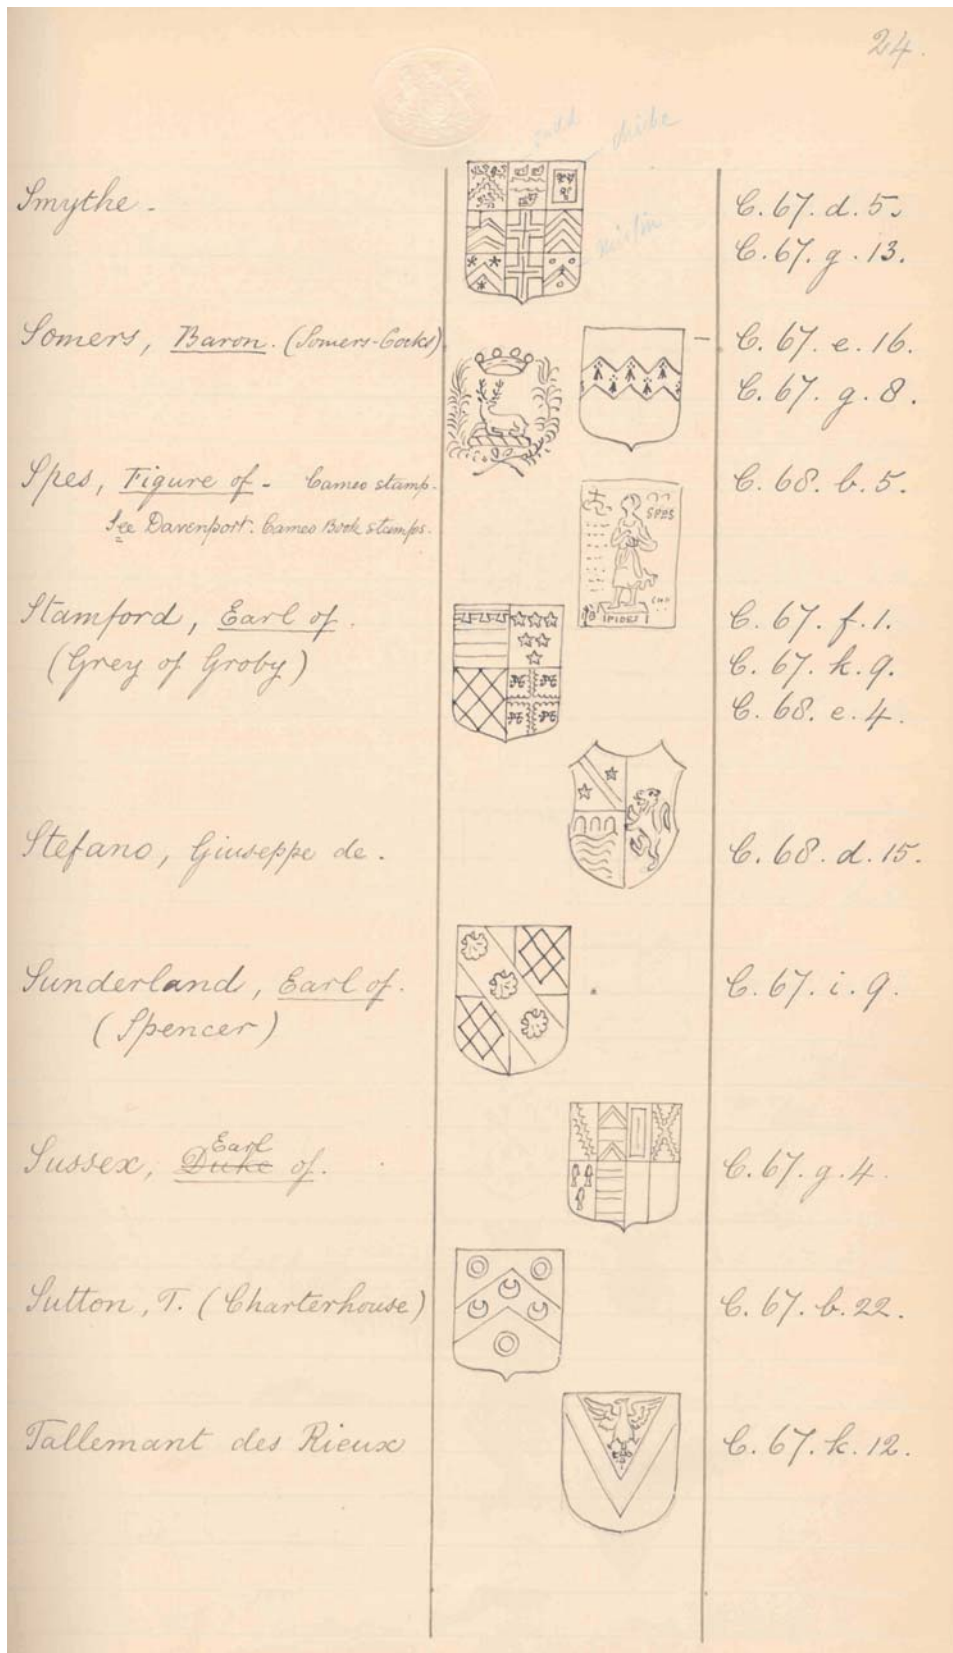 24.
Smythe -
C. 67. d. 5.
C. 67. g. 13.
Somers, Baron. (Somers-Cocks)
C. 67. e. 16.
C. 67. g. 8.
Spes, Figure of - Cameo stamp.
See Davenport. Cameo Book stamps.
C. 68. b. 5.
SPES
IPIDES
Stamford, Earl of.
(Grey of Groby)
C. 67. f. 1.
C. 67. k. 9.
C. 68. e. 4.
Stefano, Giuseppe de.
C. 68. d. 15.
Sunderland, Earl of.
(Spencer)
C. 67. i. 9.
Earl
Sussex, Duke of.
C. 67. g. 4.
Sutton, T. (Charterhouse)
C. 67. b. 22.
Tallemant des Rieux
C. 67. k. 12.